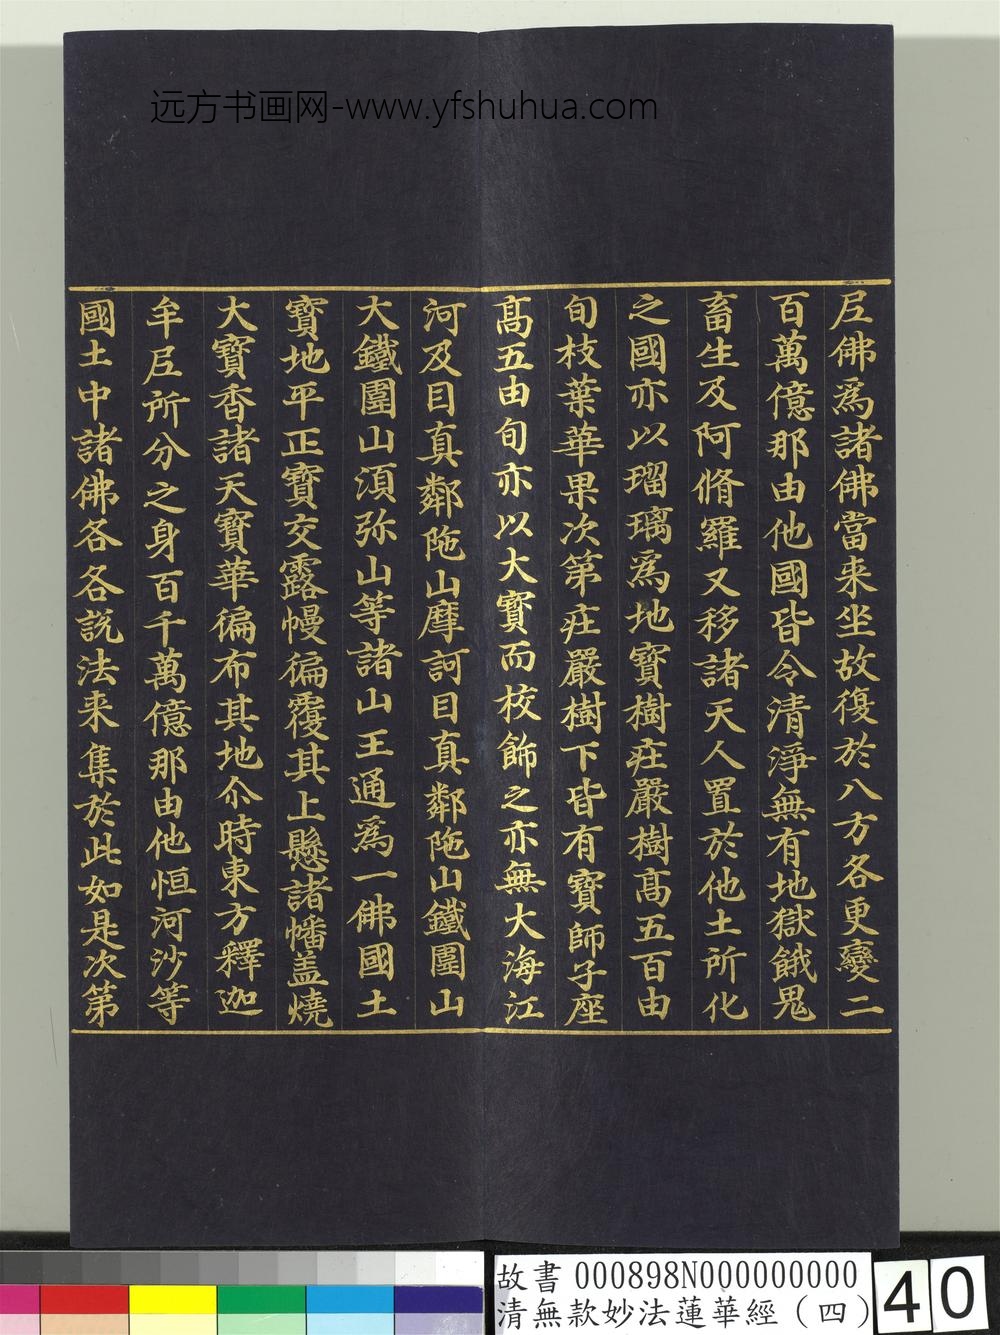 远方书画网-www.yfshuhua.com
尼佛爲諸佛當来坐故復於八方各更變二
百萬億那由他國皆令清淨無有地獄餓鬼
畜生及阿脩羅又移諸天人置於他土所化
之國亦以瑠璃爲地寶樹莊嚴樹髙五百由
旬枝葉華果次第莊嚴樹下皆有寶師子座
髙五由旬亦以大寶而校飾之亦無大海江
河及目真鄰陁山摩訶目真鄰陁山鐵圍山
大鐵圍山湏弥山等諸山王通爲一佛國土
寶地平正寶交露幔徧覆其上懸諸幡盖燒
大寶香諸天寶華徧布其地尒時東方釋迦
牟尼所分之身百千萬億那由他恒河沙等
國土中諸佛各各說法来集於此如是次第
故書 000898N000000000
清無款妙法蓮華經（四）
40